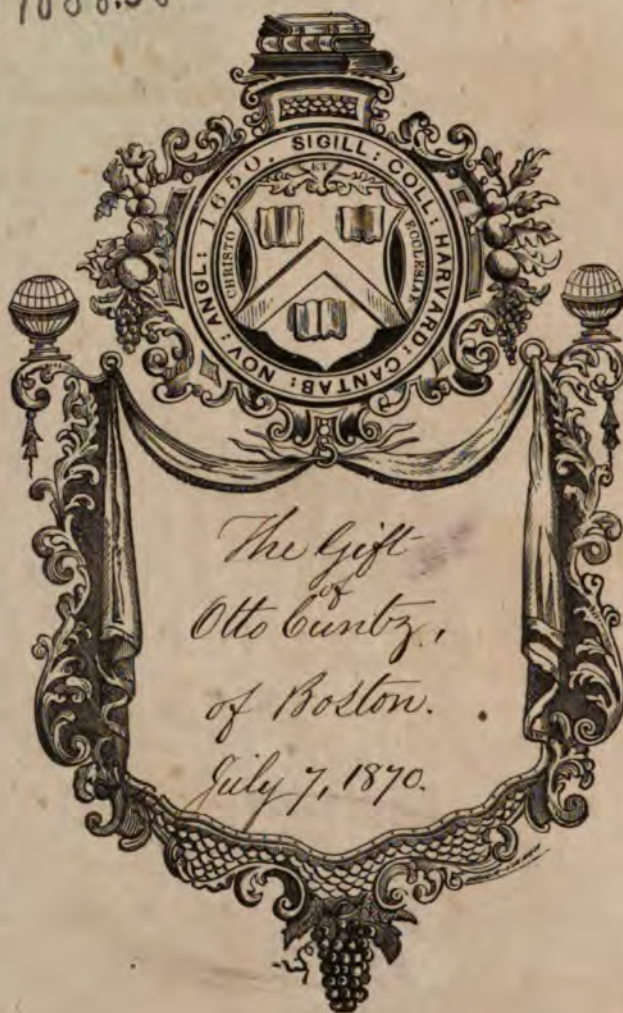 SIGILL: COLL: HARVARD: CANTAB: NOV: ANGL: 1650.
ET
CHRISTO
ECCLESIAE
The Gift
of
Otto Cuntz,
of Boston.
July 7, 1870.